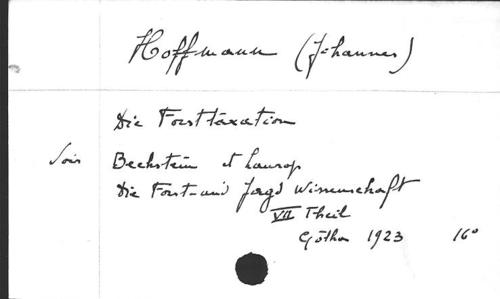 Hoffmann (Johannes)
Die Forsttaxation
Voir Bechstein et Laurop
Die Forst- und Jagd Wissenschaft
VII Theil
Gotha 1923 16°